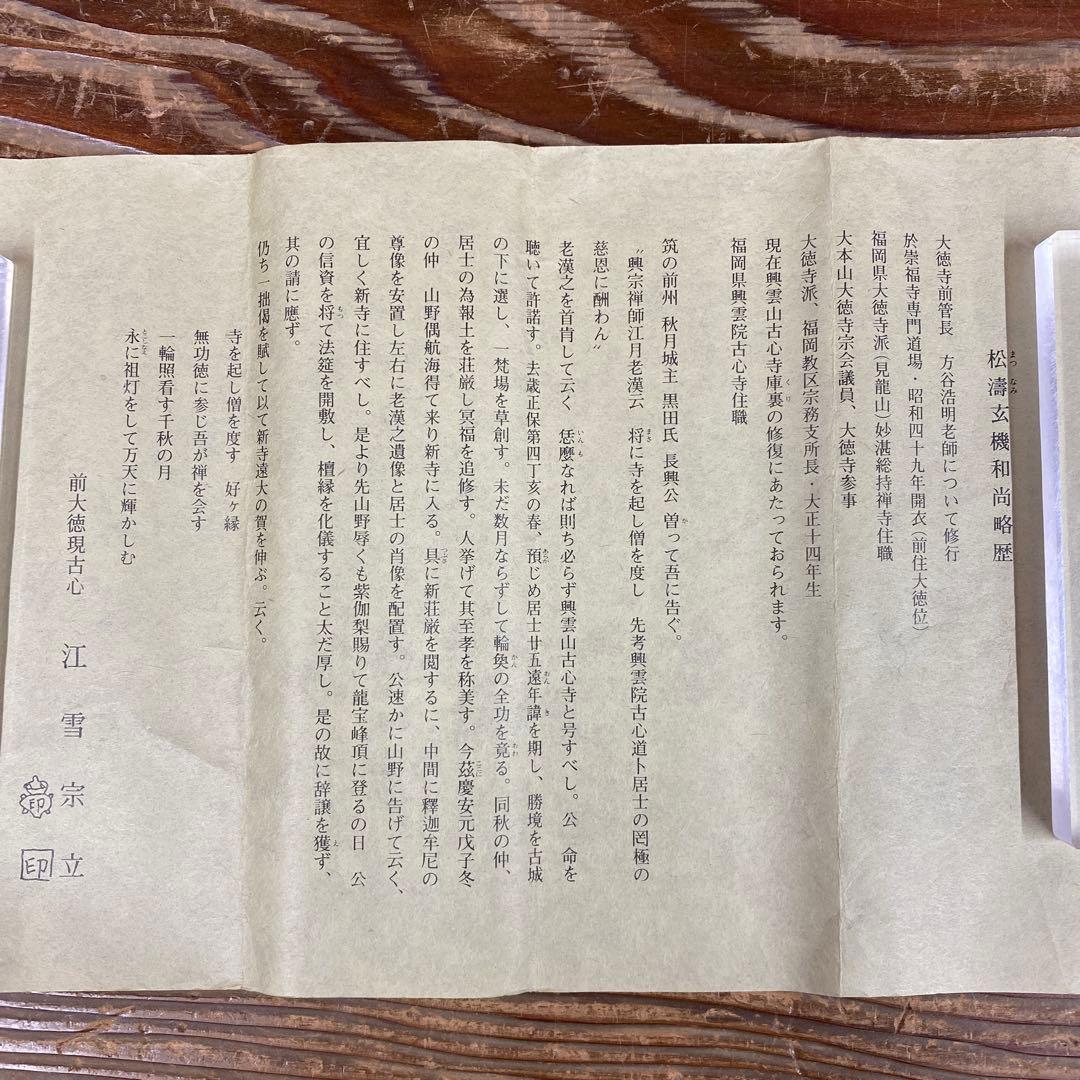 松濤玄機和尚略歴
まつなみ
大徳寺前管長　方谷浩明老師について修行
於崇福寺専門道場・昭和四十九年開衣(前住大徳位)
福岡県大徳寺派(見龍山)妙湛総持禅寺住職
大本山大徳寺宗会議員、大徳寺参事
大徳寺派、福岡教区宗務支所長・大正十四年生
現在興雲山古心寺庫裏の修復にあたっておられます。
くり
福岡県興雲院古心寺住職
筑の前州　秋月城主　黒田氏　長興公　曽って吾に告ぐ。
かつ
〝興宗禅師江月老漢云　将に寺を起し僧を度し　先考興雲院古心道卜居士の罔極の
まさ
慈恩に酬わん〟
老漢之を首肯して云く　恁麼なれば則ち必らず興雲山古心寺と号すべし。公　命を
いんも
聴いて許諾す。去歳正保第四丁亥の春、預じめ居士廿五遠年諱を期し、勝境を古城
あらか　おんき
の下に選し、一梵場を草創す。未だ数月ならずして輪奐の全功を竟る。同秋の仲、
かん　おわ
居士の為報土を荘厳し冥福を追修す。人挙げて其至孝を称美す。今茲慶安元戊子冬
ここに
の仲　山野偶航海得て来り新寺に入る。具に新荘厳を閲するに、中間に釋迦牟尼の
つぶさ
尊像を安置し左右に老漢之遺像と居士の肖像を配置す。公速かに山野に告げて云く、
宜しく新寺に住すべし。是より先山野辱くも紫伽梨賜りて龍宝峰頂に登るの日　公
の信資を将て法筵を開敷し、檀縁を化儀すること太だ厚し。是の故に辞譲を獲ず、
もつ　え
其の請に應ず。
仍ち一拙偈を賦して以て新寺遠大の賀を伸ぶ。云く。
寺を起し僧を度す　好ヶ縁
無功徳に参じ吾が禅を会す
一輪照看す千秋の月
永に祖灯をして万天に輝かしむ
とこしなえ
前大徳現古心　江雪宗立
印
印